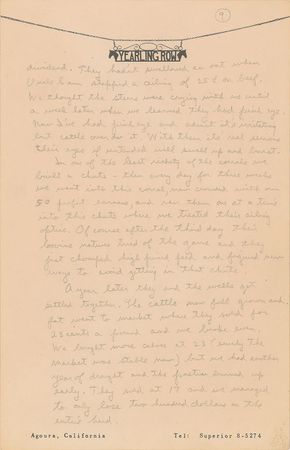 9
YEARLING ROW
dividend. They hadn't swallowed an oat when
Uncle Sam slapped a ceiling of 25¢ on beef.
We thought the steers were crying with us until
a week later when we learned they had pink eye.
Now I've had pink eye and admit it's irritating
but cattle over do it. With them its real serious
their eyes if untended will swell up and burst.
In one of the last of the corrals we
built a chute - then every day for three weeks
we went into this corral, now crowded with our
50 perfect earners, and ran them one at a time
into this chute where we treated their ailing
optics. Of course after the third day their
bovine natures tired of the game and they
just chomped high priced feed and figured new
ways to avoid getting in that chute.
A year later they and the wells got
settled together. The cattle now full grown and
fat went to market where they sold for
23 cents a pound and we broke even.
We bought more calves at 23 (surely the
market was stable now) but we had another
year of drought and the pasture burned up
early. They sold at 17 and we managed
to only lose two hundred dollars on the
entire herd.
Agoura, California Tel: Superior 8-5274